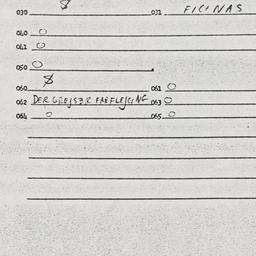 030 8 031 FICINAS
040 0
041 0
050 0
060 $ 061 0
062 063 0
064 0 065 0